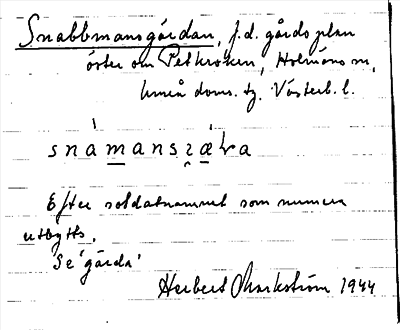 Snabbmansgårdan, f.d. gårdsplan
öster om Petkroken, Holmöns sn,
Umeå doms. tg. Västerb. l.
snámansɀǽɽa
Efter soldatnamnet som numera
utbytts.
Se 'gärda'
Herbert Markström 1944